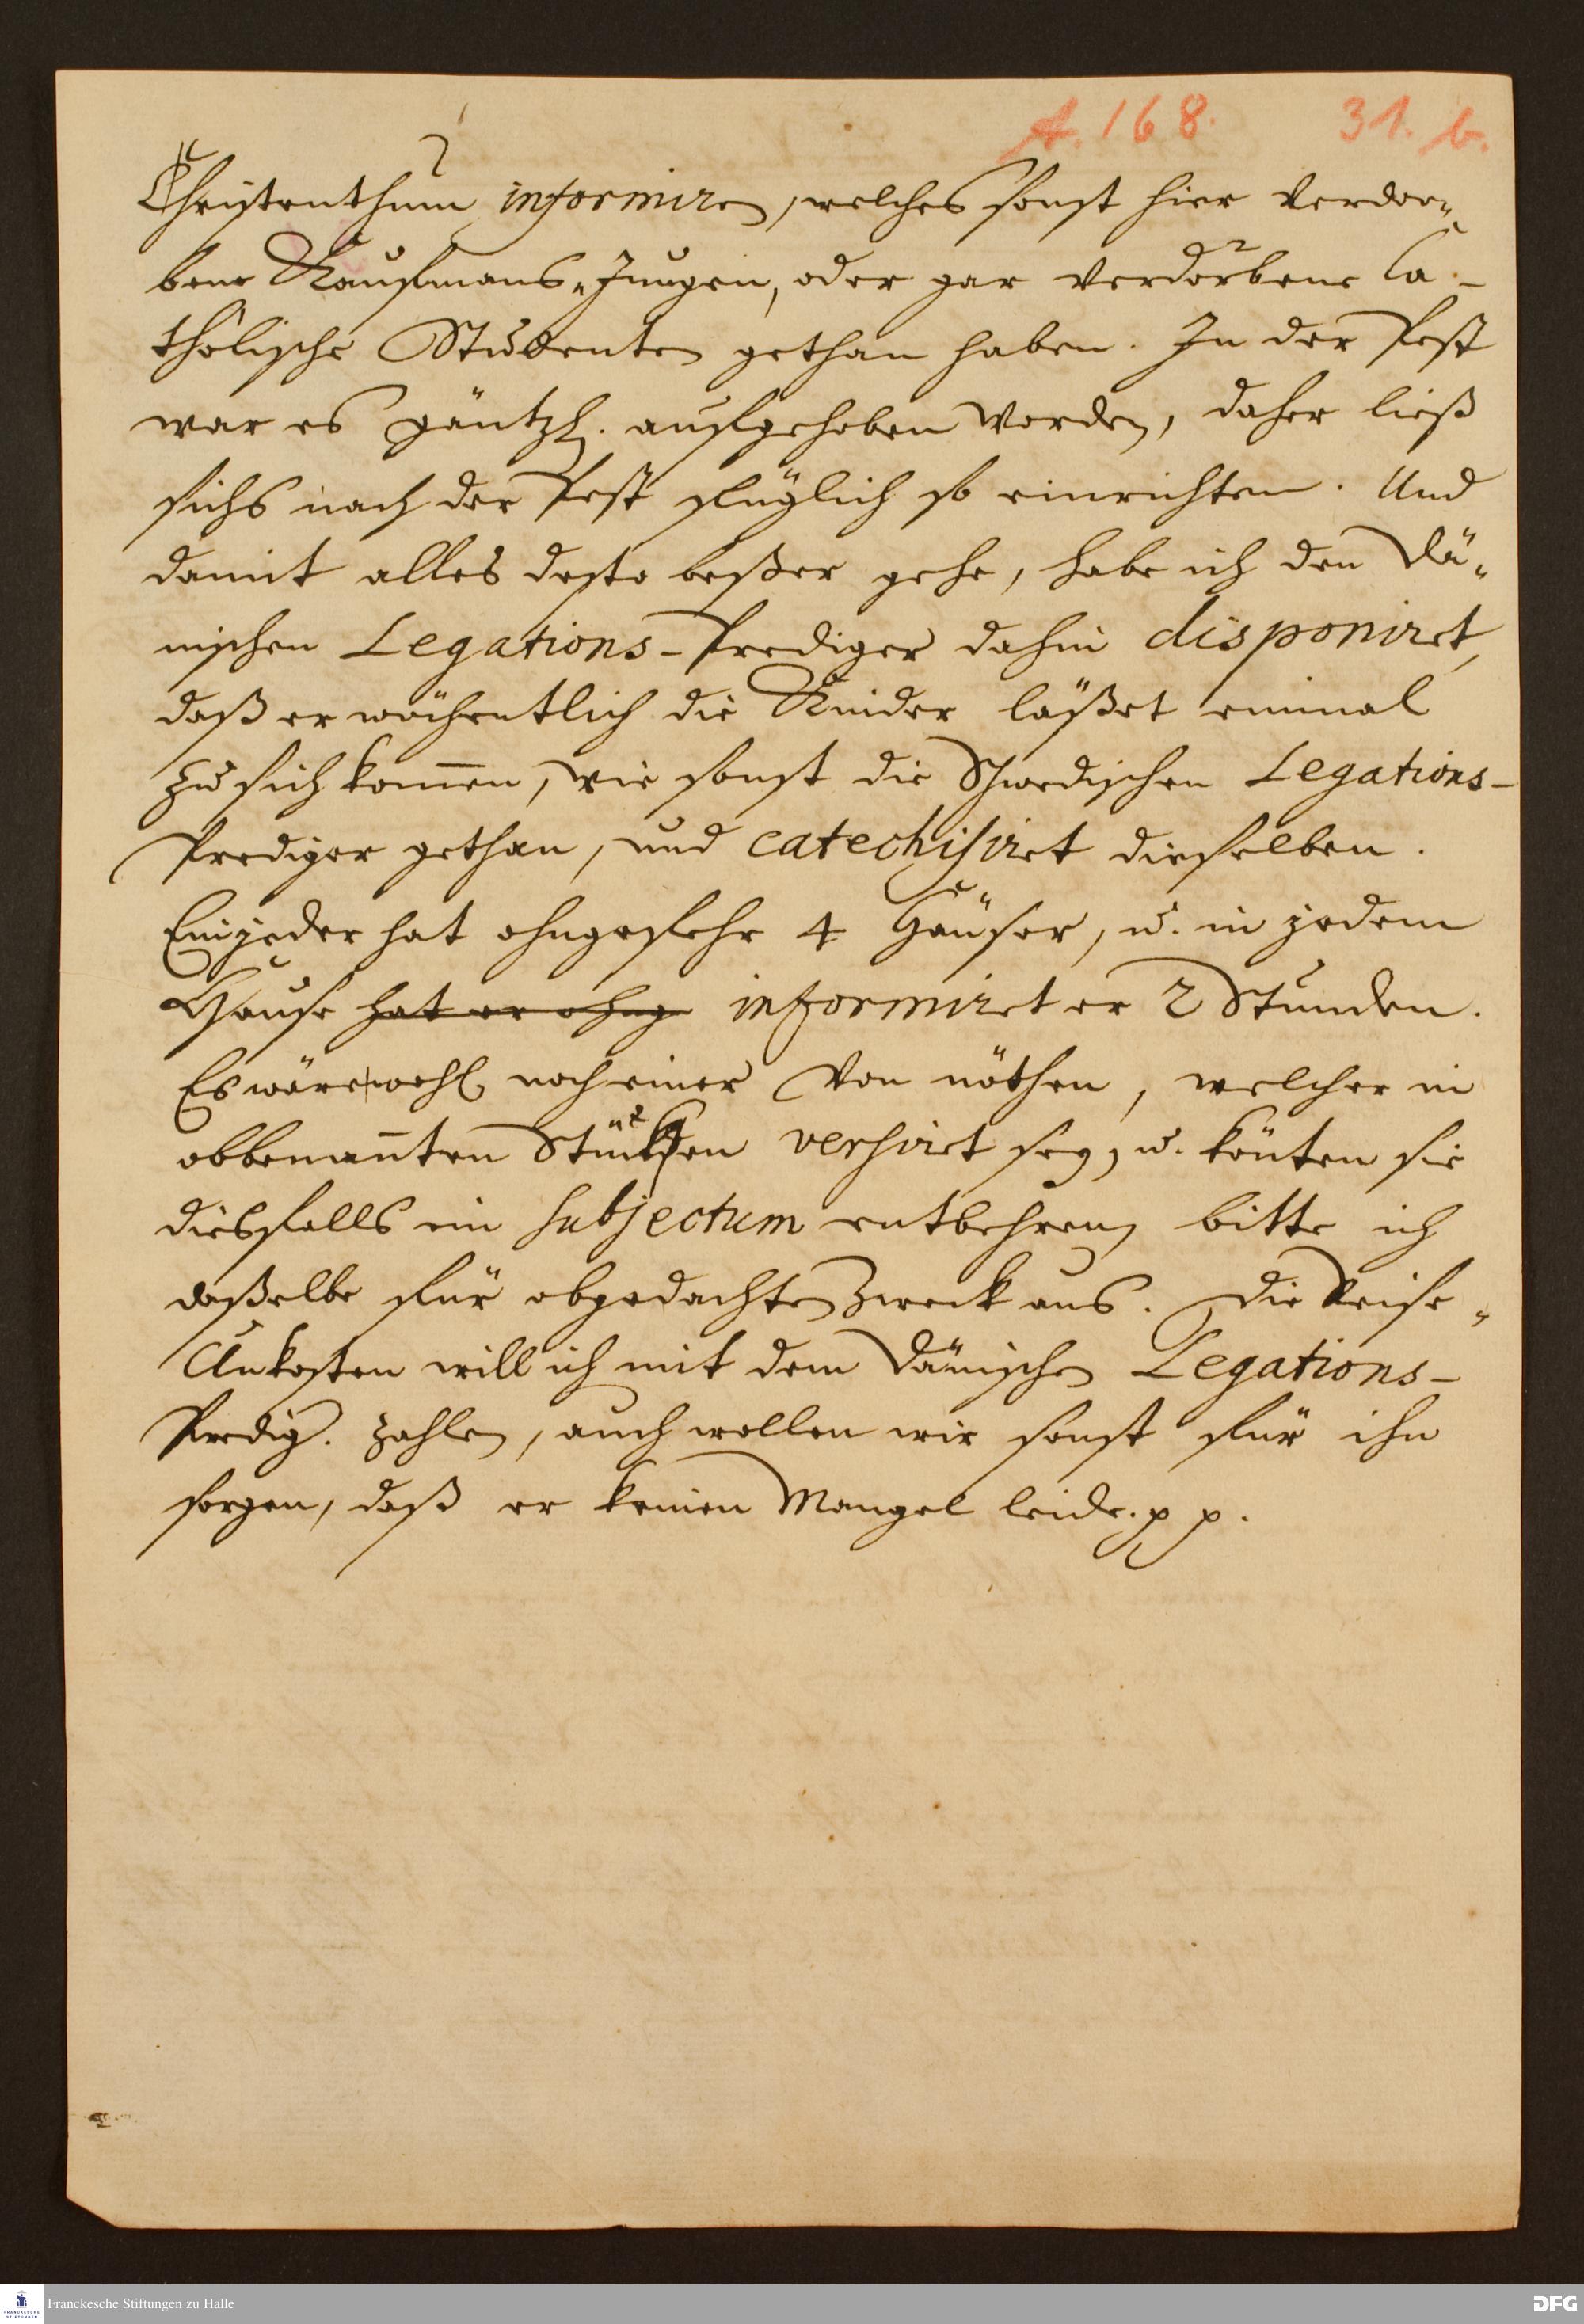 A. 168. 31. b.
Christenthum informiren, welches sonst hier verdor-
bene Kaufmans-Jungen, oder gar verdorbene Ca-
tholische Studenten gethan haben. In der Pest
war es gäntzl. aufgehoben worden, daher ließ
sichs nach der Pest füglich so einrichten. Und
damit alles desto beßer gehe, habe ich den Dä-
nischen Legations-Prediger dahin disponiret,
daß er wöchentlich die Kinder läßet einmal
zu sich kom̄en, wie sonst die Schwedischen Legations-
Prediger gethan, und catechisiret dieselben.
Ein jeder hat ohngefehr 4 Häuser, u. in jedem
Hause hat er ohng informiret er 2 Stunden.
Es wäre wohl noch einer von nöthen, welcher in
obbenan̄ten Stücken versiret sey, u. könten sie
diesfalls ein subjectum entbehren, bitte ich
daßelbe für obgedachten Zweck aus. Die Reise-
Unkosten will ich mit dem Dänischen Legations-
Predig. zahlen, auch wollen wir sonst für ihn
sorgen, daß er keinen Mangel leide. p p.
Franckesche Stiftungen zu Halle
FRANCKESCHE STIFTUNGEN
DFG